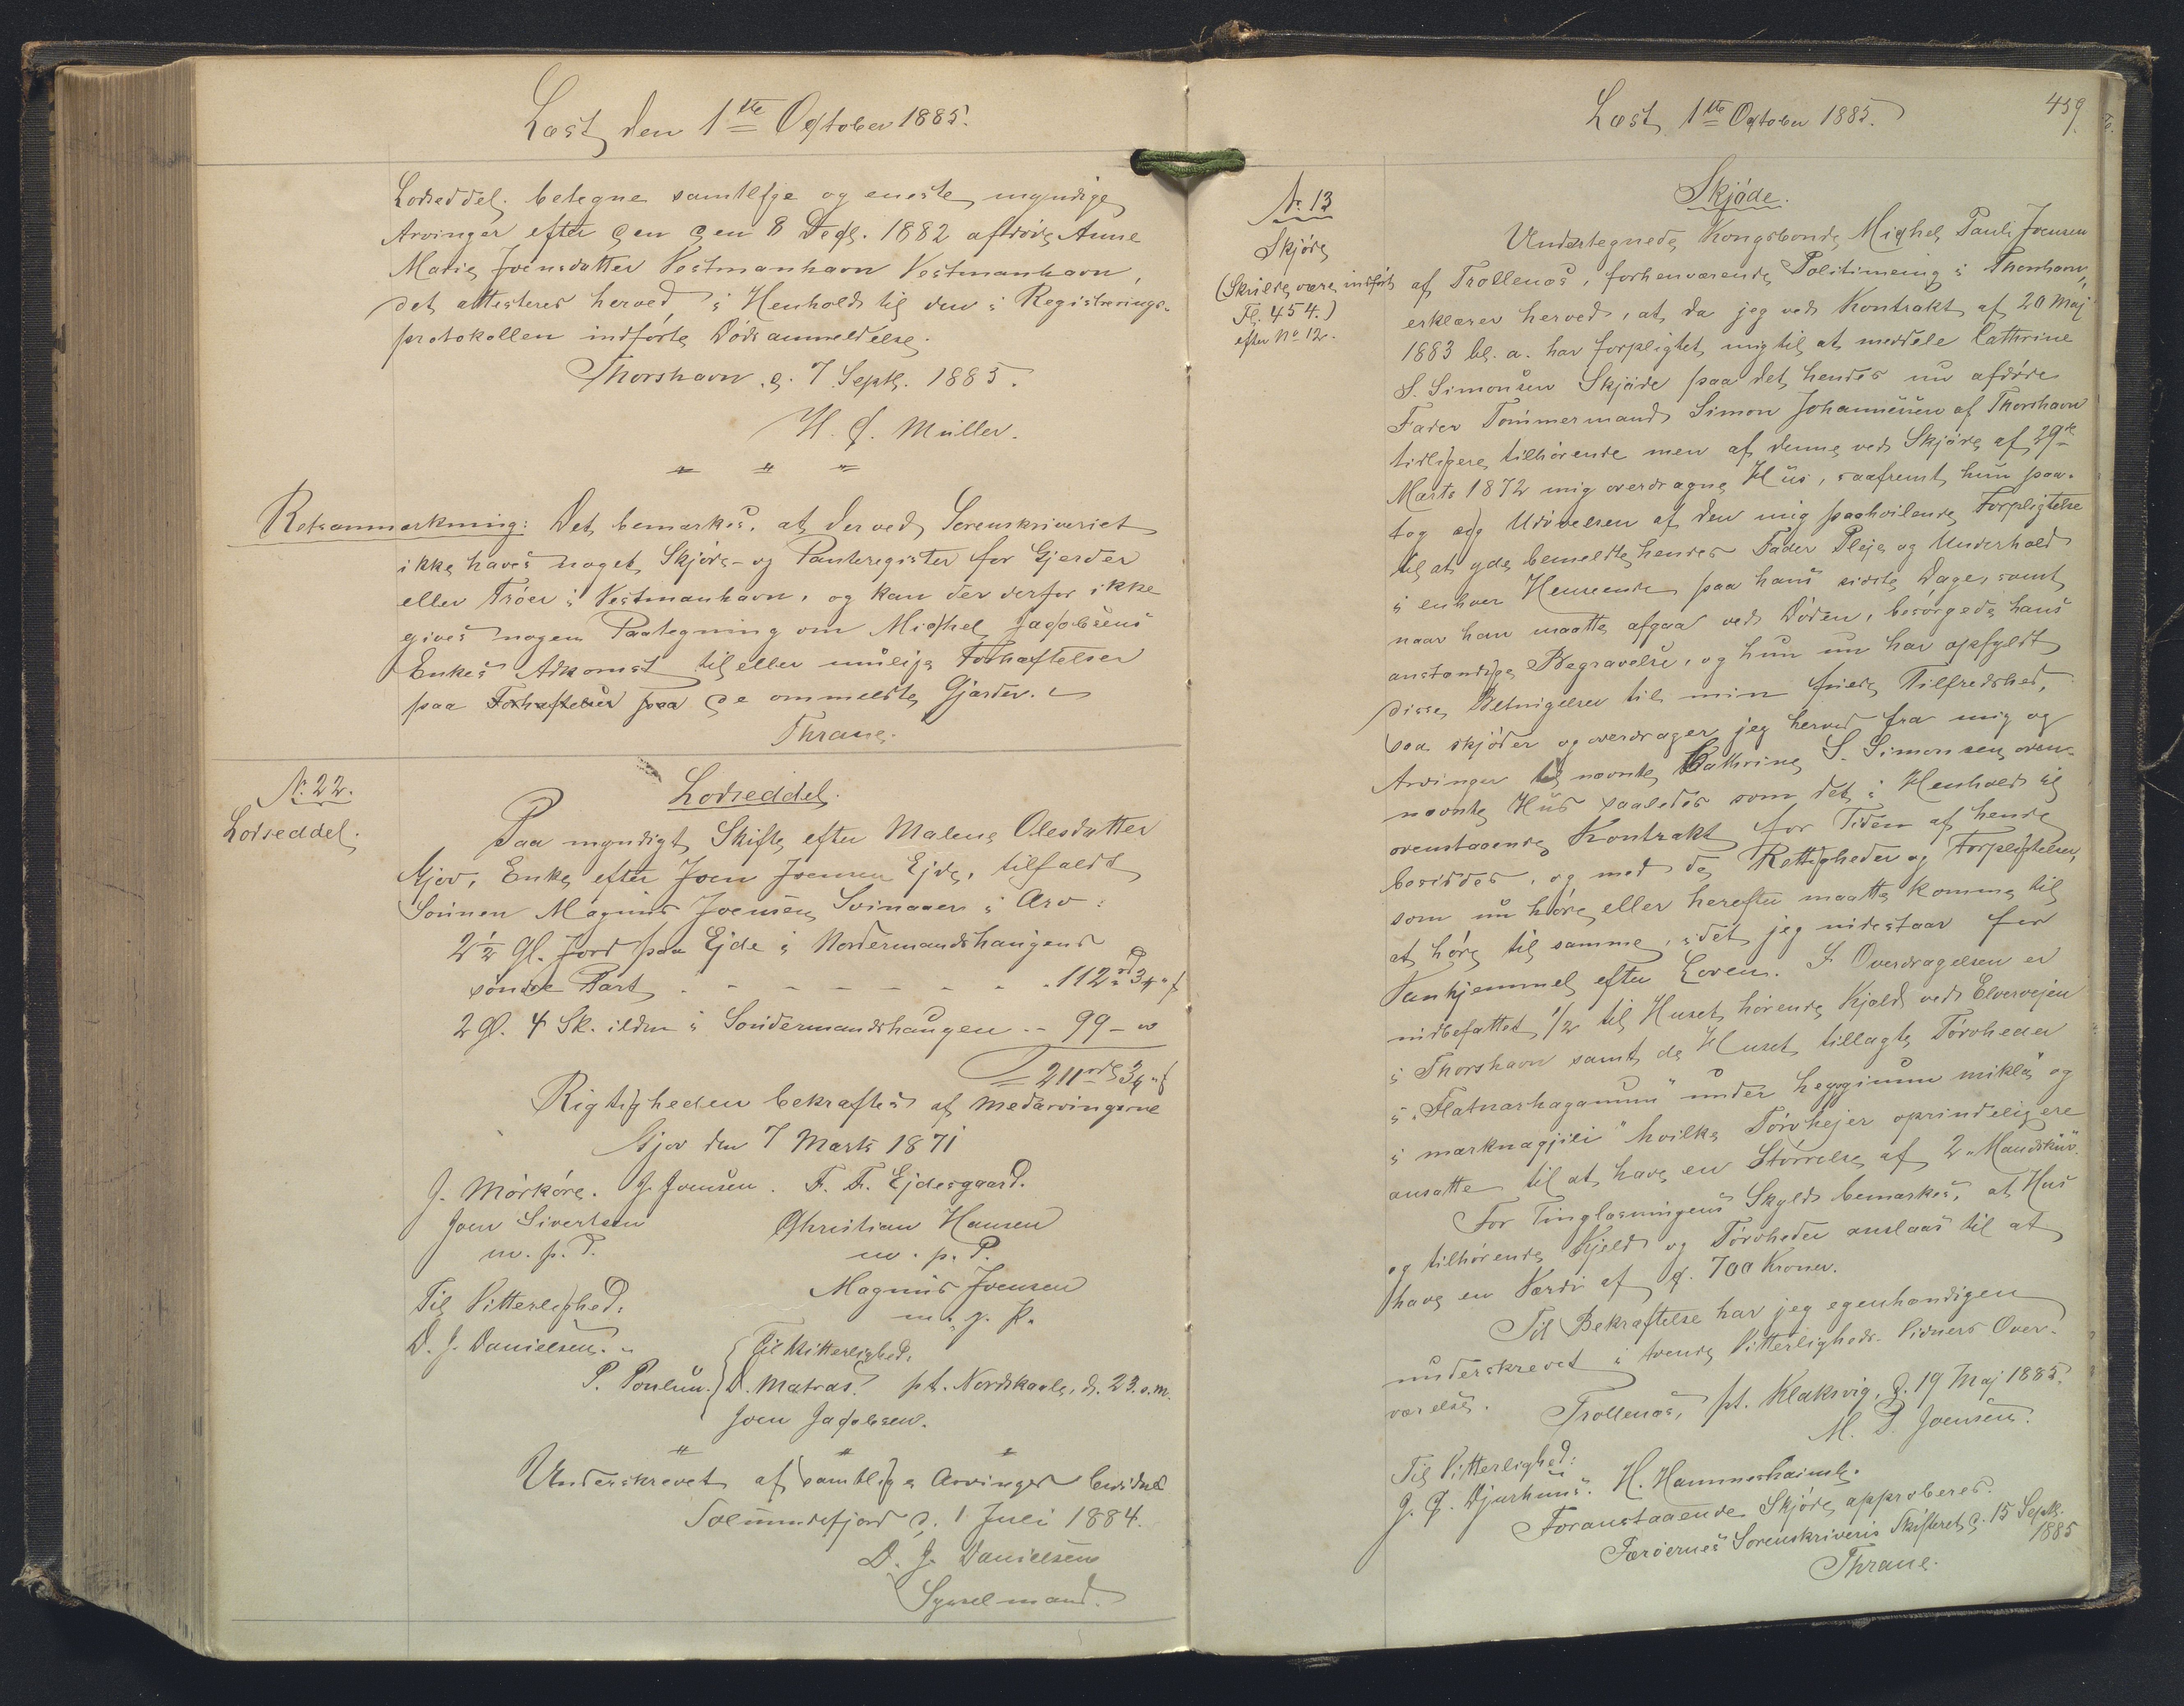 Læst den 1ste October 1885.
Lodseddel betegne samtlige og eneste myndige
Arvinger efter den den 8 Decb. 1882 afdøde Anne
Marie Joensdatter Vestmanhavn Vestmanhavn,
det attesteres herved i Henhold til den i Registrerings-
protokollen indførte Dødsanmeldelse.
Thorshavn d. 7 Septb. 1885.
H. C. Müller.
" " "
Retsanmærkning: Det bemærkes, at der ved Sorenskriveriet
ikke haves noget Skjøde- og Panteregister for Gjerder
eller Trøer i Vestmanhavn, og kan der derfor ikke
gives nogen Paategning om Michel Jacobsens
Enkes Adkomst til eller mulige Forhæftelser
paa Forhæftelser paa de ommeldte Gjærder.
Thrane.
No. 22.
Lodseddel.
Lodseddel.
Paa myndigt Skifte efter Malene Olesdatter
Gjov, Enke efter Joen Joensen Ejde, tilfaldt
Sønnen Magnus Joensen Svinaaer i Arv:
2½ Gl. Jord paa Ejde i Nordermandshaugens
søndre Part - - - - - - - 112 rd 3 ¼ "
2 Gl. 4 Sk. ibdm i Søndermandshaugen - - 99 - "
= 211 rd 3 ¼ "
Rigtigheden bekræftes af Medarvingerne
Gjov den 7 Marts 1871
J. Mørkøre. J. Joensen. F. F. Ejdesgaard.
Joen Sivertsen Christian Hansen
m. p. P. m. p. P.
Magnus Joensen
m. p. P.
Til Vitterlighed:
D. J. Danielsen.
P. Poulsen.
Til Vitterlighed:
D. Matras. pt. Nordskaale, d. 23. s.m.
Joen Jacobsen.
" " "
Underskrevet af samtlige Arvinger bevidnes
Solmundefjord d. 1 Juli 1884.
D. J. Danielsen
Sysselmand.
Læst 1ste October 1885.
459.
No. 13
Skjøde
(Skulde være indført
Fl. 454.)
efter No 12.
Skjøde.
Undertegnede Kongsbonde Michel Pauli Joensen
af Trøllenæs, forhenværende Politimeing i Thorshavn,
erklærer herved, at da jeg ved Kontrakt af 20 Maj
1883 bl. a. har forpligtet mig til at meddele Cathrine
S. Simonsen Skjøde paa det hendes nu afdøde
Fader Tømmermand Simon Johannesen af Thorshavn
tidligere tilhørende men af denne ved Skjøde af 29de
Marts 1872 mig overdragne Hus, saafremt hun paa-
tog sig Udøvelsen af den mig paahvilende Forpligtelse
til at yde bemeldte hendes Fader Pleje og Underhold
i enhver Henseende paa hans sidste Dage, samt
naar han maatte afgaa ved Døden, besørgede hans
anstændige Begravelse, og hun nu har opfyldt
disse Betingelser til min fulde Tilfredshed,
saa skjøder og overdrager jeg herved fra mig og
Arvinger til nævnte Cathrine S. Simonsen oven-
nævnte Hus saaledes som det i Henhold til
ovenstaaende Kontrakt for Tiden af hende
besiddes, og med de Rettigheder og Forpligtelser,
som nu høre eller herefter maatte komme til
at høre til samme, idet jeg indestaar for
Vanhjemmel efter Loven. I Overdragelsen er
indbefattet 1/2 til Huset hørende Kjæld ved Elvervejen
i Thorshavn samt de Huset tillagte Tørvheder
i "Flatnarhaganum" under heygginum mikla og
i marknagjili" hvilke Tørvhejer oprindeligere
ansatte til at have en Størrelse af 2 "Mandskur".
For Tinglæsningens Skyld bemærkes, at Hus
og tilhørende Kjeld og Tørvheder anslaas til at
have en Værdi af c. 700 Kroner.
Til Bekræftelse har jeg egenhændigen
underskrevet i tvende Vitterligheds-Vidners Over-
værelse.
Trøllenæs, pt. Klaksvig, d. 19 Maj 1885.
M. P. Joensen.
Til Vitterlighed:
J. C. Djurhuus. H. Hammershaimb.
Foranstaaende Skjøde approberes.
Færøernes Sorenskriveris Skifteret d. 15 Septb.
1885
Thrane.